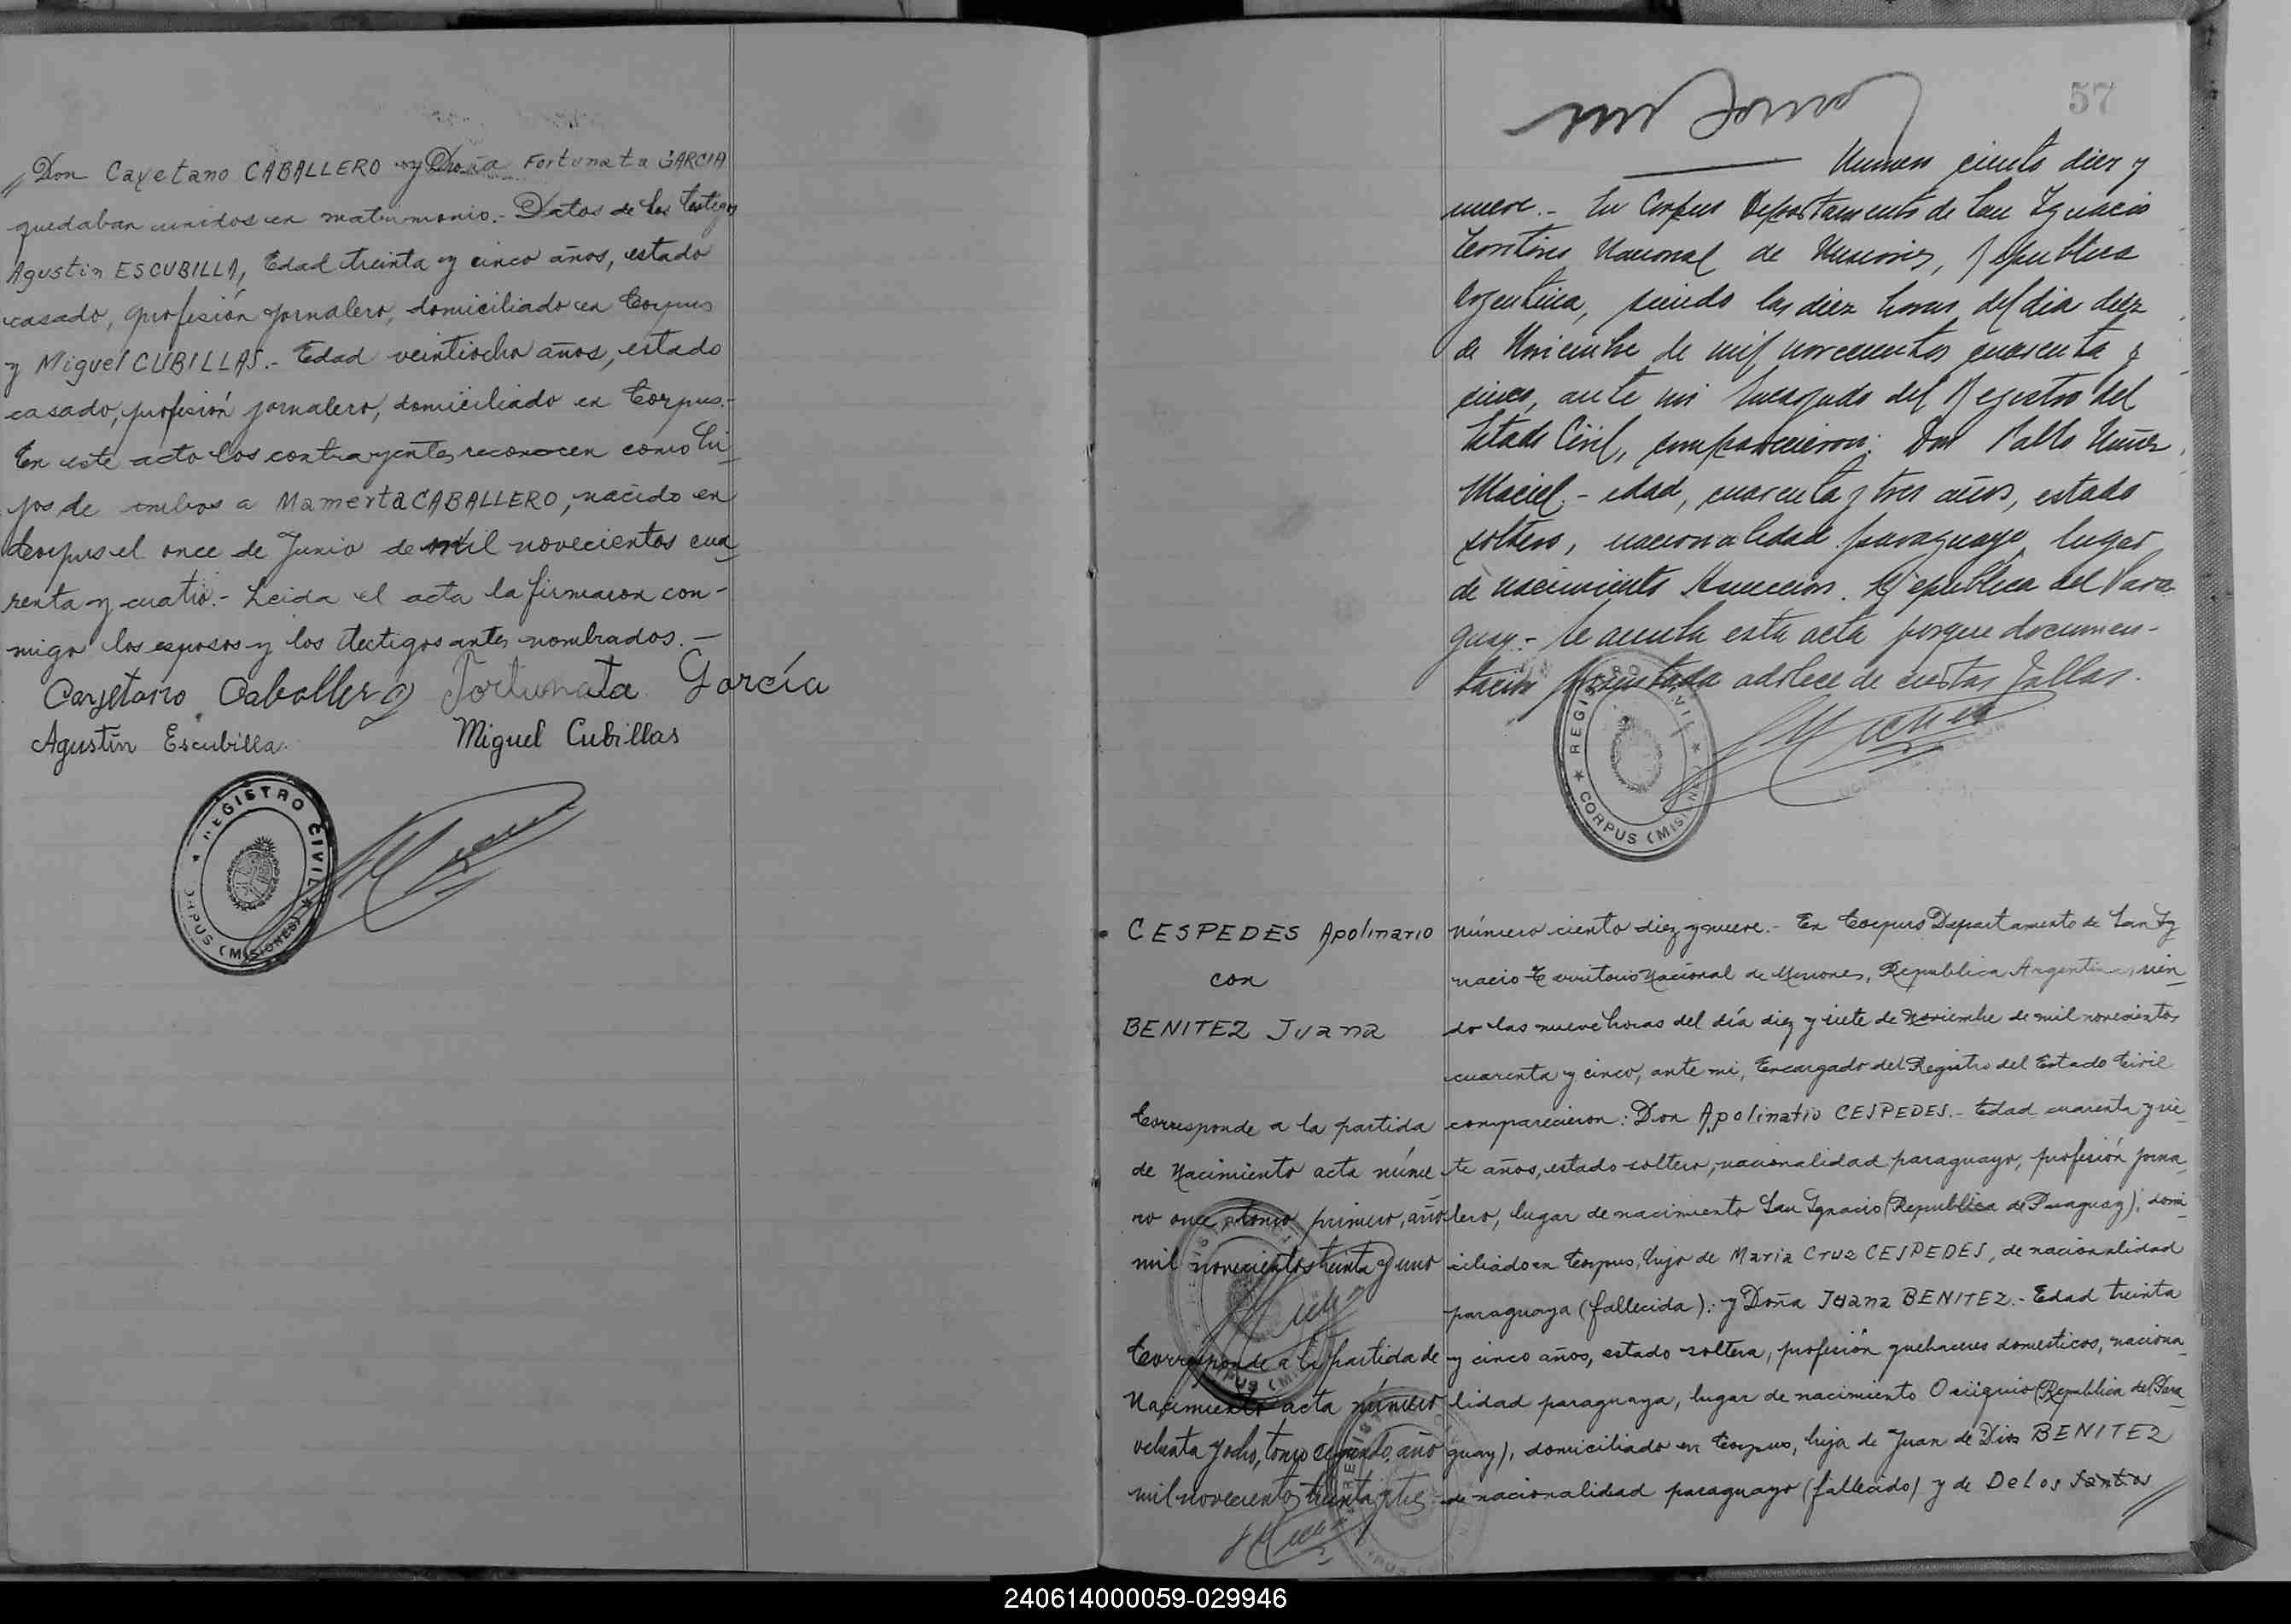 // Don Cayetano CABALLERO y Doña Fortunata GARCIA
quedaban unidos en matrimonio.- Datos de los testigos
Agustin ESCUBILLA, Edad treinta y cinco años, estado
casado, profesión jornalero, domiciliado en Corpus
y Miguel CUBILLAS.- Edad veintiocho años, estado
casado, profesión jornalero, domiciliado en Corpus.-
En este acto los contrayentes reconocen como hi-
jos de ambos a Mamerta CABALLERO, nacido en
Corpus el once de Junio de mil novecientos cua-
renta y cuatro.- Leida el acta la firmaron con-
migo los esposos y los tectigos antes nombrados.-
Cayetano Caballero Fortunata García
Agustín Escubilla Miguel Cubillas
REGISTRO CIVIL
CORPUS (MISIONES)
57
Numero ciento diez y
nueve.- En Corpus Departamento de San Ignacio
Territorio Nacional de Misiones, Republica
Argentina, siendo las diez horas del dia diez
de Noviembre de mil novecientos cuarenta y
cinco, ante mi Encargado del Registro del
Estado Civil, comparecieron: Don Pablo Nuñez
Maciel.- edad, cuarenta y tres años, estado
soltero, nacionalidad paraguaya, lugar
de nacimiento Asuncion. Republica del Para
guay.- Se anula esta acta porque documen-
tacion presentada adolece de ciertas fallas.
REGISTRO CIVIL
CORPUS (MISIONES)
CESPEDES Apolinario
con
BENITEZ Juana
Corresponde a la partida
de Nacimiento acta núme
ro once, tomo primero, año
mil novecientos treinta y uno
Corresponde a la partida de
Nacimiento acta número
ochenta y ocho, tomo segundo, año
mil novecientos treinta y tres
Número ciento diez y nueve.- En Corpus Departamento de San Ig-
nacio Territorio Nacional de Misiones, Republica Argentina, sien-
do las nueve horas del día diez y siete de Noviembre de mil novecientos
cuarenta y cinco, ante mi, Encargado del Registro del Estado Civil
comparecieron: Don Apolinario CESPEDES.- Edad cuarenta y sie-
te años, estado soltero, nacionalidad paraguayo, profesión jorna-
lero, lugar de nacimiento San Ignacio (Republica de Paraguay), domi-
ciliado en Corpus, hijo de Maria Cruz CESPEDES, de nacionalidad
paraguaya (fallecida).- y Doña Juana BENITEZ.- Edad treinta
y cinco años, estado soltera, profesión quehaceres domesticos, naciona-
lidad paraguaya, lugar de nacimiento (Republica del Para-
guay), domiciliado en Corpus, hija de Juan de Dios BENITEZ
de nacionalidad paraguayo (fallecido) y de De Los Santos //
240614000059-029946